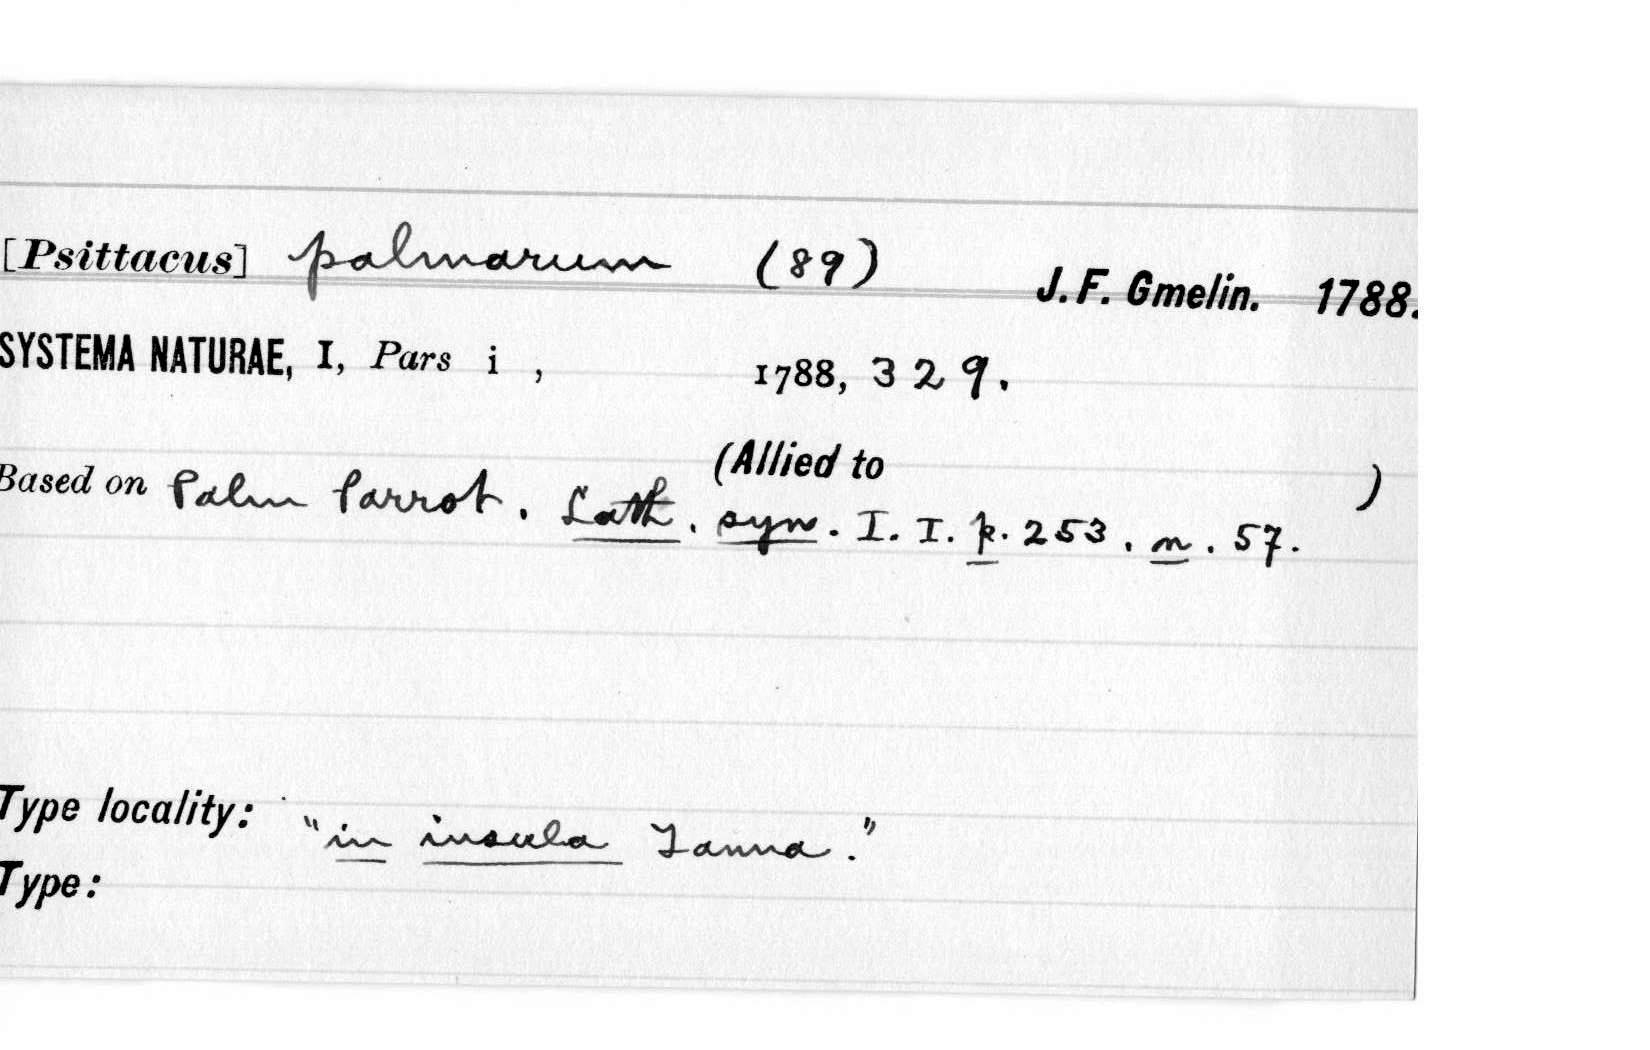 [Psittacus] palmarum (89) J. F. Gmelin. 1788.
SYSTEMA NATURAE, I, Pars i , 1788, 329.
(Allied to )
Based on Palm Parrot. Lath. syn. I. I. p. 253. n. 57.
Type locality: "in insula Tanna."
Type: